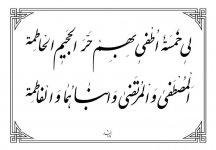 لی خمسة اطفی بهم حر الجحیم الحاطمة
المصطفی و المرتضی و ابناهما و الفاطمة